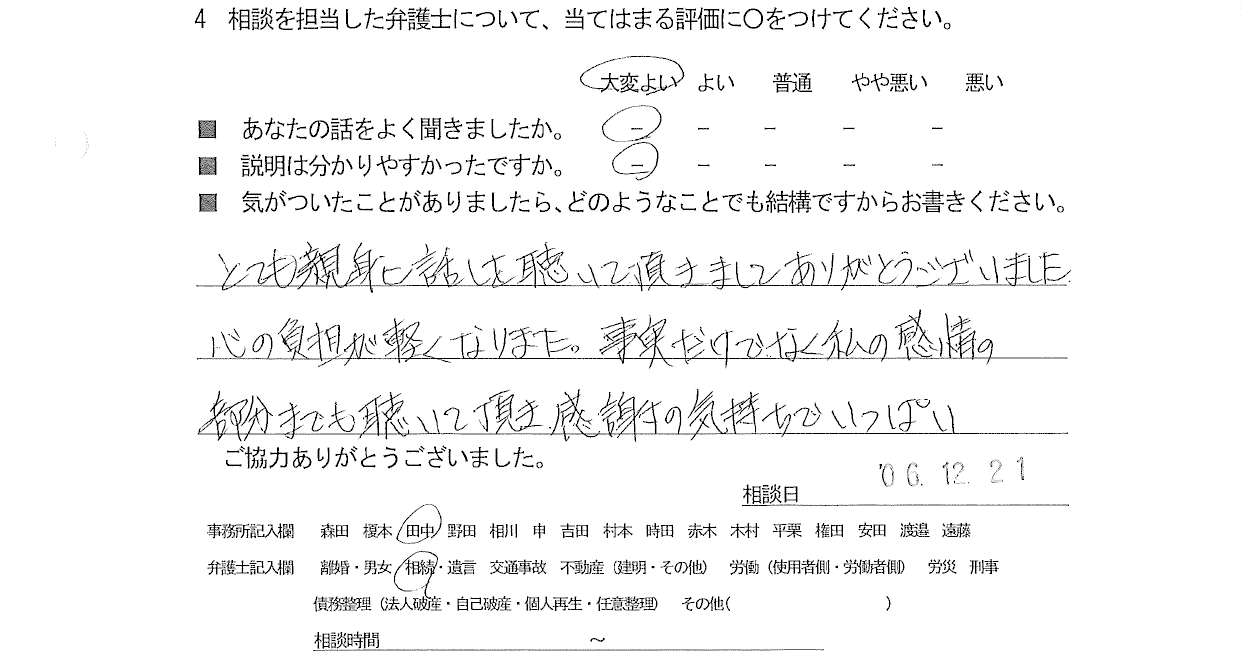 4 相談を担当した弁護士について、当てはまる評価に〇をつけてください。
大変よい よい 普通 やや悪い 悪い
■ あなたの話をよく聞きましたか。 － － － － －
■ 説明は分かりやすかったですか。 － － － － －
■ 気がついたことがありましたら、どのようなことでも結構ですからお書きください。
とても親身に話しを聴いて頂きましてありがとうございました
心の負担が軽くなりました。事実だけでなく私の感情の
部分までも聴いて頂き感謝の気持ちでいっぱい
ご協力ありがとうございました。
相談日 '06.12.21
事務所記入欄 森田 榎本 田中 野田 相川 申 吉田 村本 時田 赤木 木村 平栗 権田 安田 渡邉 遠藤
弁護士記入欄 離婚・男女 相続・遺言 交通事故 不動産（建明・その他） 労働（使用者側・労働者側） 労災 刑事
債務整理（法人破産・自己破産・個人再生・任意整理） その他( )
相談時間 ～